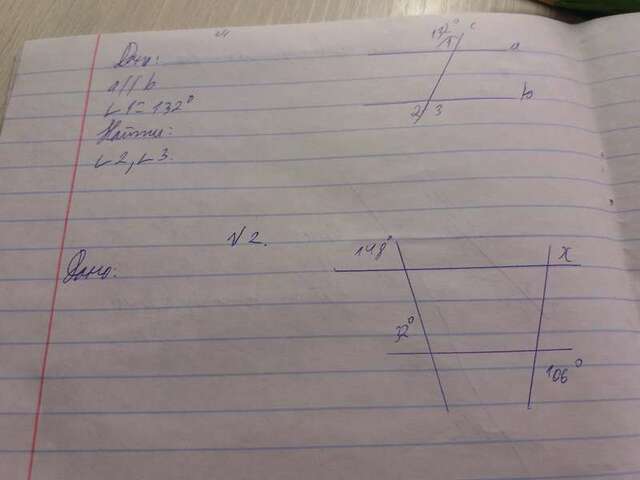 Дано:
a || b
∠1 = 132°
Найти:
∠2, ∠3.
132° c
1
a
b
2 3
N 2.
Дано:
148°
x
32°
106°